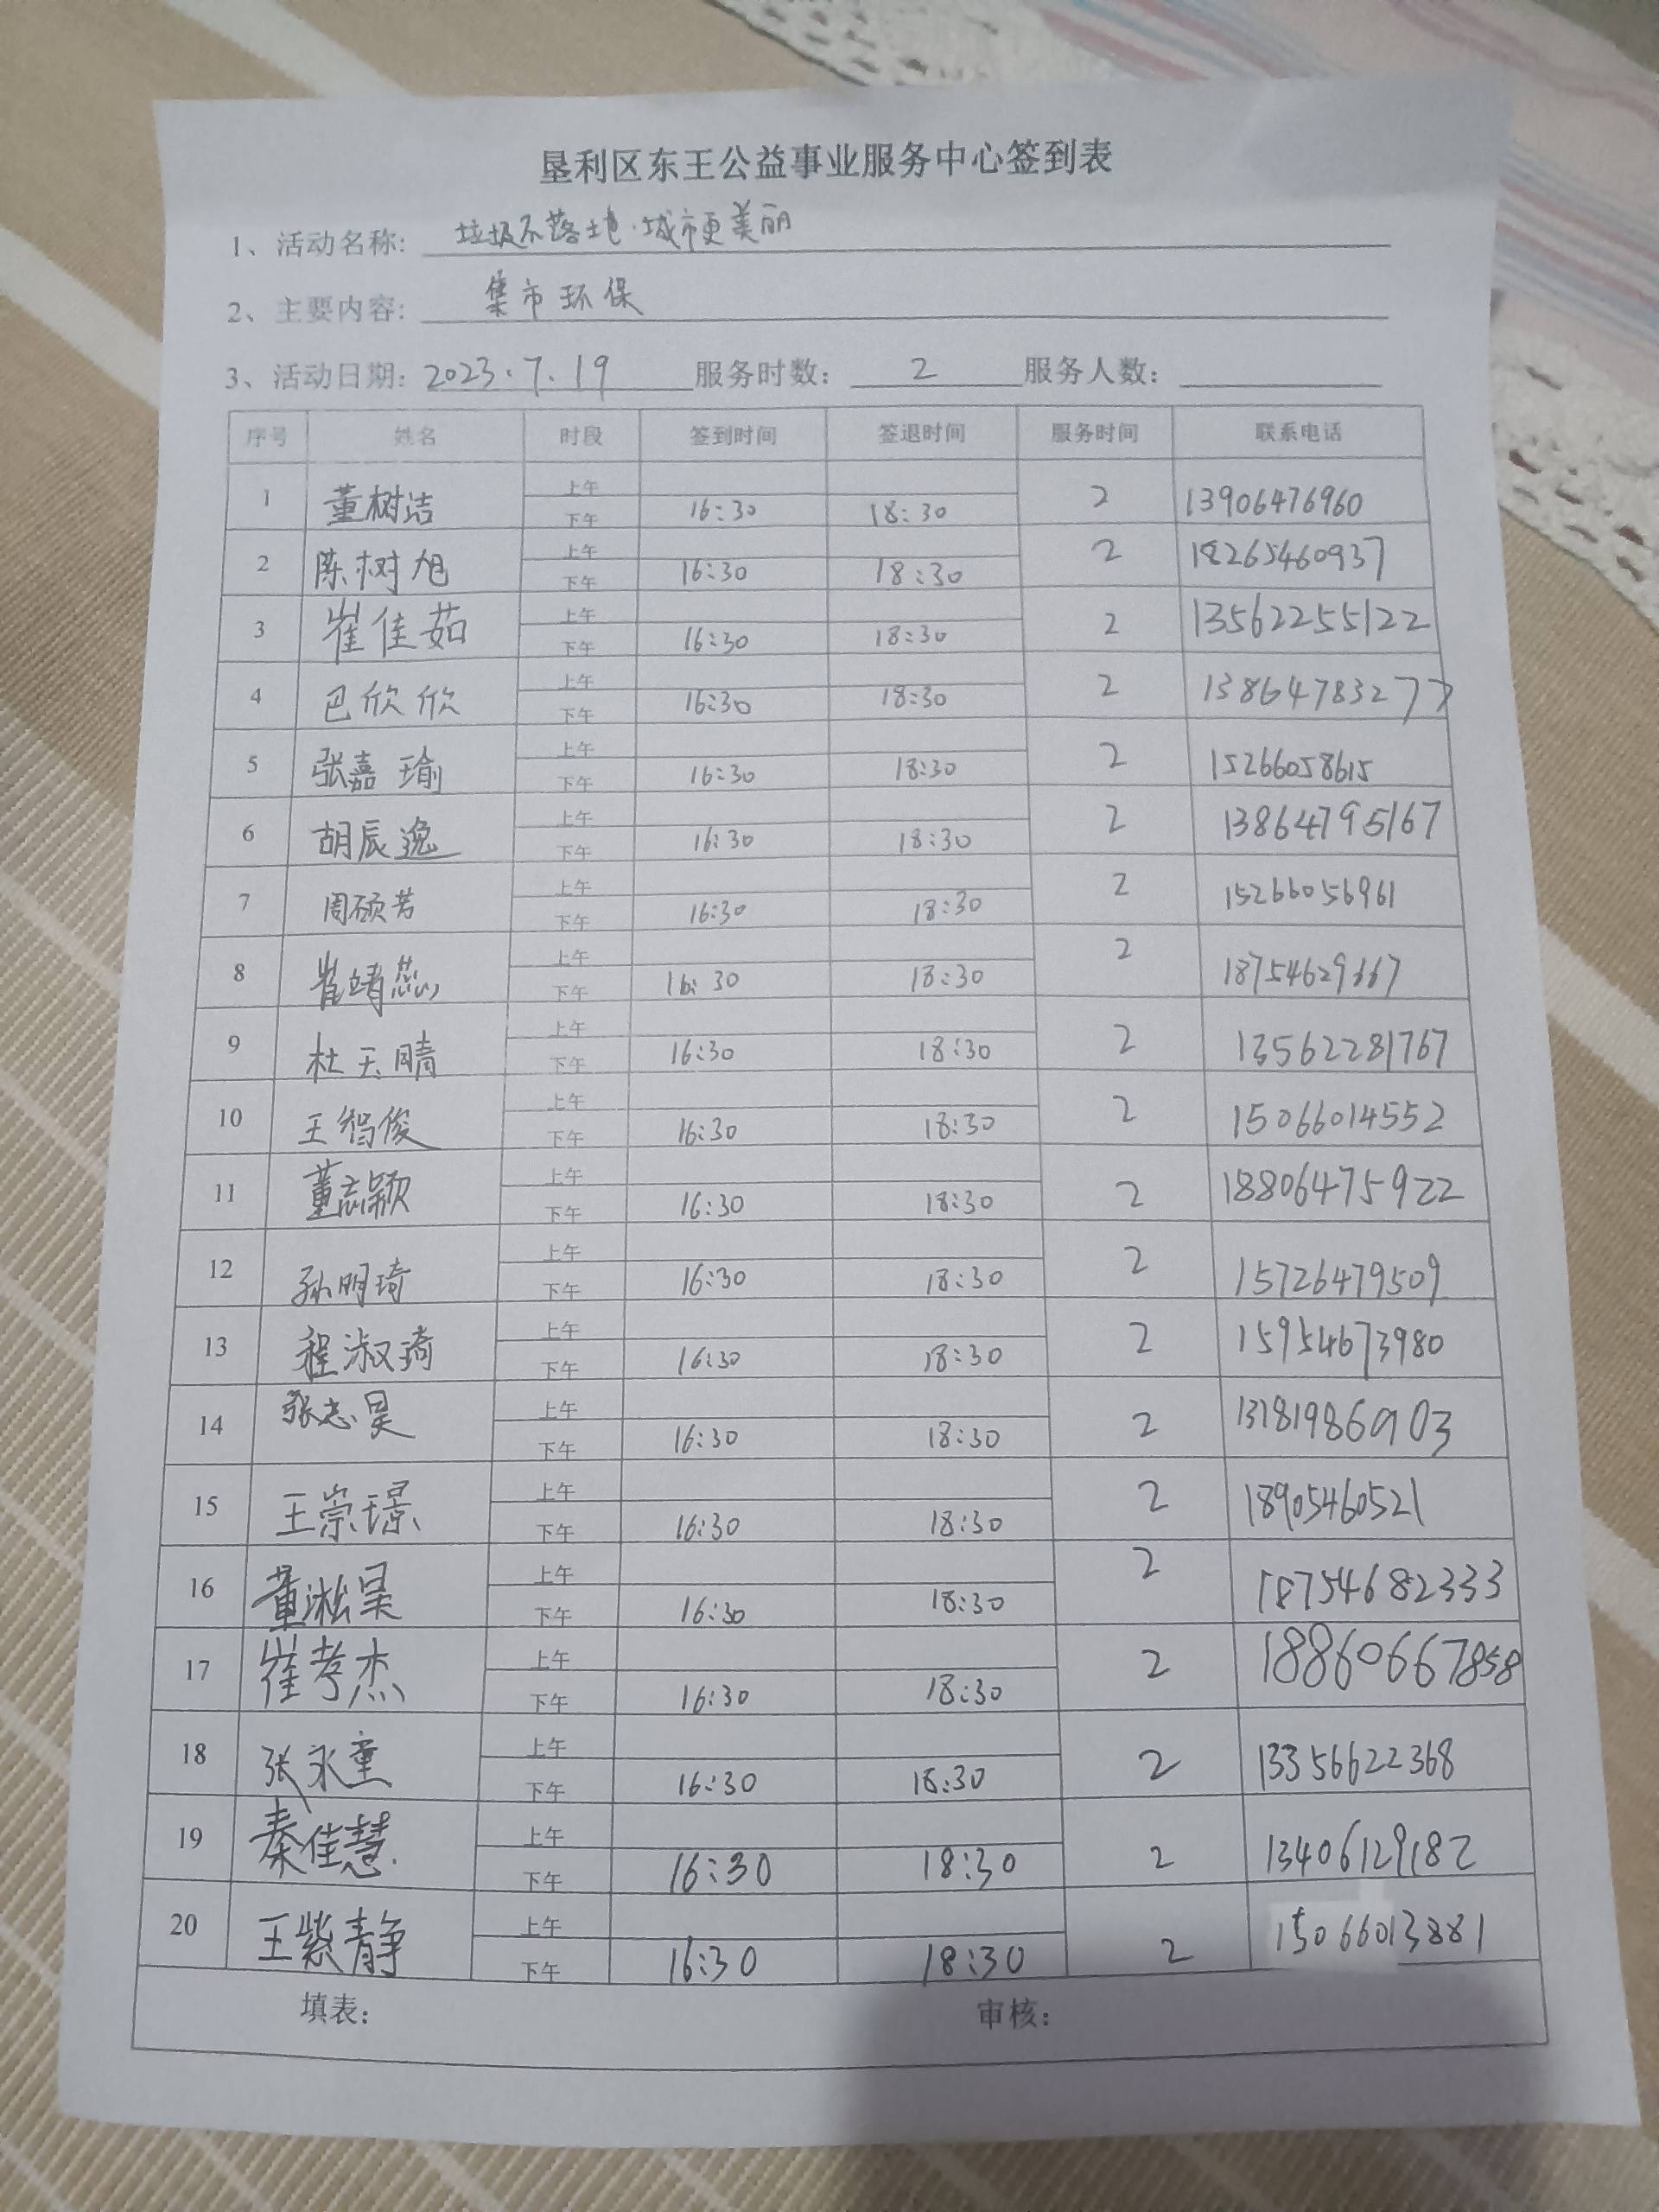 垦利区东王公益事业服务中心签到表
1、活动名称: 垃圾不落地·城市更美丽
2、主要内容: 集市环保
3、活动日期: 2023.7.19 服务时数: 2 服务人数:
序号 姓名 时段 签到时间 签退时间 服务时间 联系电话
1 董树洁 上午 2 13906476960
下午 16:30 18:30
2 陈树旭 上午 2 18265460937
下午 16:30 18:30
3 崔佳茹 上午 2 13562255122
下午 16:30 18:30
4 巴欣欣 上午 2 13864783277
下午 16:30 18:30
5 张嘉瑜 上午 2 15266058615
下午 16:30 18:30
6 胡辰逸 上午 2 13864795167
下午 16:30 18:30
7 周硕芳 上午 2 15266056961
下午 16:30 18:30
8 崔靖蕊 上午 2
下午 16:30 18:30
9 杜天晴 上午 2 13562281767
下午 16:30 18:30
10 王智俊 上午 2 15066014552
下午 16:30 18:30
11 董志颖 上午 2 18806475922
下午 16:30 18:30
12 孙明琦 上午 2 15726479509
下午 16:30 18:30
13 程淑琦 上午 2 15954673980
下午 16:30 18:30
14 张志昊 上午 2
下午 16:30 18:30
15 王崇璟 上午 2 18905460521
下午 16:30 18:30
16 董淞昊 上午 2 18754682333
下午 16:30 18:30
17 崔孝杰 上午 2 18860667858
下午 16:30 18:30
18 张永童 上午 2 13356622368
下午 16:30 18:30
19 秦佳慧 上午 2 13406129182
下午 16:30 18:30
20 王紫静 上午 2 15066013881
下午 16:30 18:30
填表: 审核: